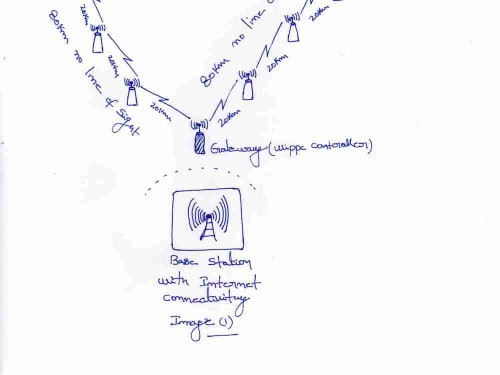 80Km no line of Sight
80Km no line
20Km
20Km
20Km
20Km
20Km
20Km
Gateway (wippe controller)
Base Station
with Internet
connectivity
Image (1)